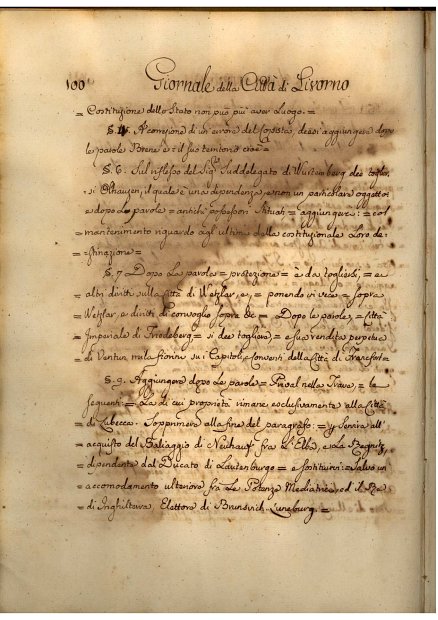 100 Giornale della Città di Livorno
= Costituzione dello Stato non può più aver Luogo. =
§. 4. A correzione di un errore del Copista, devesi aggiungere dopo
le parole e il suo territorio cioè =
§. 6. Sul riflesso del Sig. Suddelegato di Wurtemberg dee toglier
si Olhausen, il quale è una dipendenza, e non un particolare oggetto:
e dopo le parole = antichi possessori = aggiungere: = col
= mantenimento riguardo agl'ultimi della costituzionale Loro de:
= stinazione =
§. 7 Dopo la parola = protezione = è da togliersi, = e
altri diritti sulla Città di Wetzlar, e, = ponendo in vece = sopra
Wetzlar, e diritti di Convoglio sopra &c = Dopo le parole, = Città
Imperiale di Friedberg = si dee togliere = e sua rendita perpetua
di Ventun mila fiorini su i Capitoli, e Conventi della Città di Francfort =
§. 9. Aggiungere dopo le parole = Prival nella Trave, = le
seguenti: = La di cui proprietà rimane esclusivamente alla Città
di Lubecca. Sopprimere alla fine del paragrafo: = all'
= acquisto del Baliaggio di fra l'Elba, e la
= dipendente dal Ducato di Lautenburgo = e sostituirvi: = Salvo un
= accomodamento ulteriore fra Le Potenze Mediatrici, ed il Re
= di Inghilterra, Elettore di Brunsvich Luneburg. =